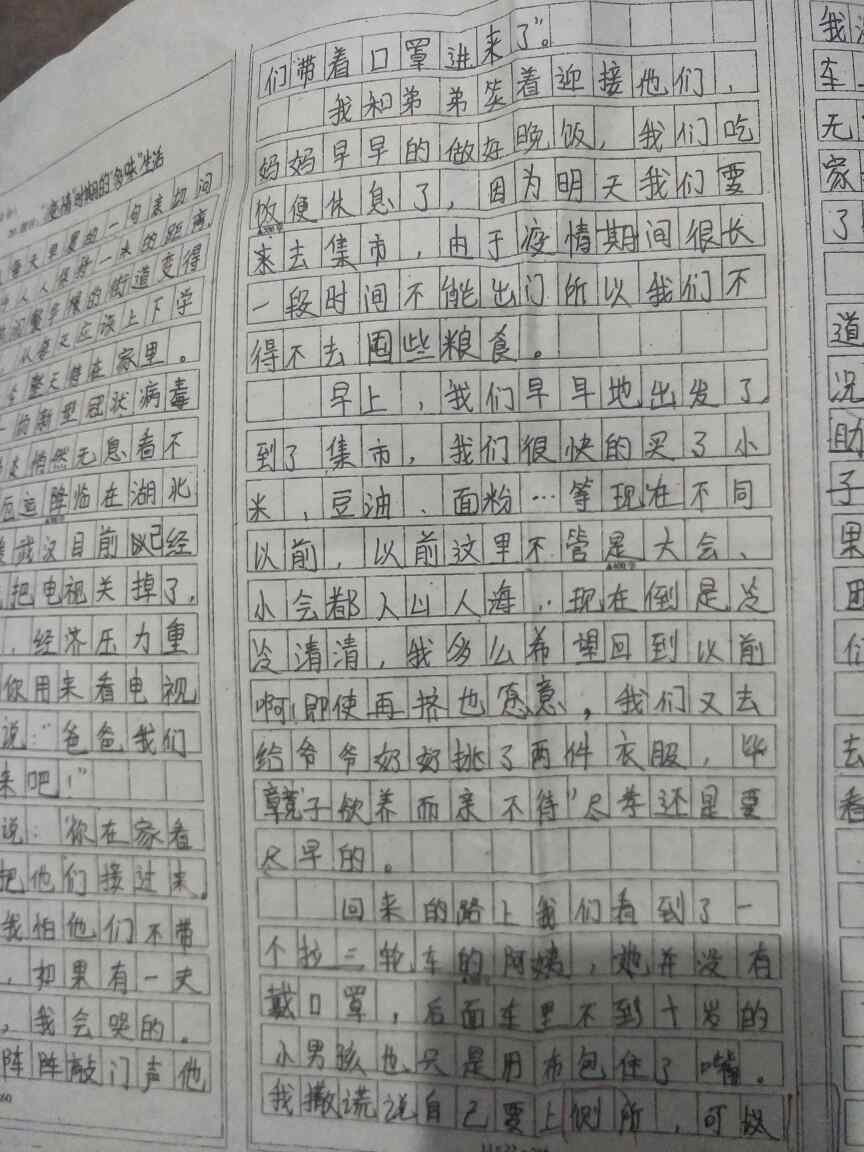 "疫情"时期的"多味"生活
每天早晨的一句亲切问
人人保持一米的距离,
的街道变得
从每天应该上下学
整天待在家里。
的新型冠状病毒
悄然无息看不
降临在湖北
武汉目前以已经
把电视关掉了,
,经济压力重
你用来看电视
说:"爸爸我们
来吧!"
说:"你在家看
把他们接过来,
我怕他们不带
,如果有一天
,我会哭的。
阵阵敲门声他
们带着口罩进来了"。
我和弟弟笑着迎接他们,
妈妈早早的做好晚饭,我们吃
饭便休息了,因为明天我们要
来去集市,由于疫情期间很长
一段时间不能出门所以我们不
得不去囤些粮食。
早上,我们早早地出发了,
到了集市,我们很快的买了小
米、豆油、面粉…等现在不同
以前,以前这里不管是大会、
小会都人山人海..现在倒是冷
冷清清,我多么希望回到以前
啊!即使再挤也愿意,我们又去
给爷爷奶奶挑了两件衣服,毕
竟"子欲养而亲不待"尽孝还是要
尽早的。
回来的路上我们看到了一
个拉三轮车的阿姨,她并没有
戴口罩,后面车里不到十岁的
小男孩也只是用布包住了嘴。
我撒谎说自己要上厕所,可以
我
车
无
家
了
道
况
助
子
果
困
们
去
看